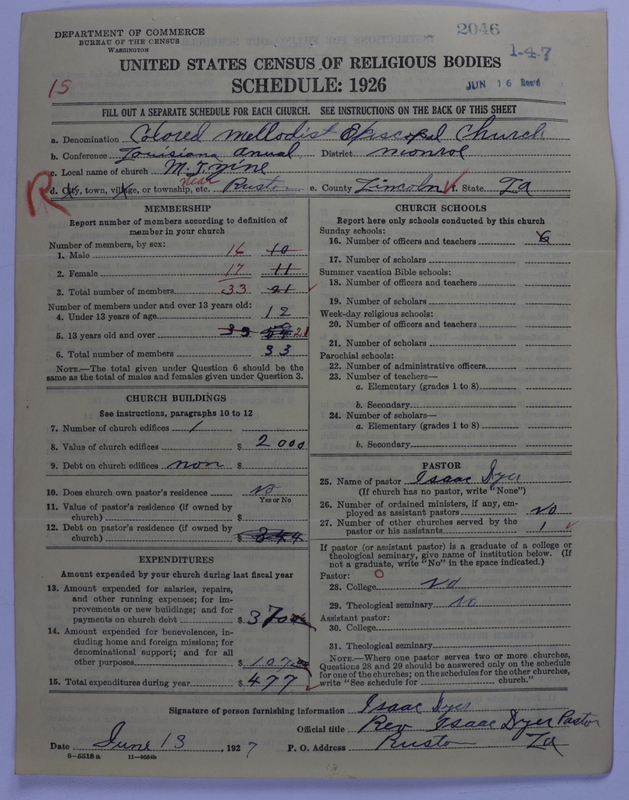 DEPARTMENT OF COMMERCE
BUREAU OF THE CENSUS
WASHINGTON
2046
1-4-7
UNITED STATES CENSUS OF RELIGIOUS BODIES
15
SCHEDULE: 1926
JUN 16 Rec'd
FILL OUT A SEPARATE SCHEDULE FOR EACH CHURCH. SEE INSTRUCTIONS ON THE BACK OF THIS SHEET
a. Denomination Colored Methodist Episcopal Church
b. Conference Louisiana Annual District Monroe
c. Local name of church
R d. City, town, village, or township, etc. near Ruston e. County Lincoln f. State La
MEMBERSHIP
Report number of members according to definition of
member in your church
Number of members, by sex:
1. Male 16 10
2. Female 17 11
3. Total number of members 33 21
Number of members under and over 13 years old:
4. Under 13 years of age 12
5. 13 years old and over 21
6. Total number of members 33
NOTE.—The total given under Question 6 should be
same as the total of males and females given under Question 3.
CHURCH BUILDINGS
See instructions, paragraphs 10 to 12
7. Number of church edifices 1
8. Value of church edifices $ 2000
9. Debt on church edifices non $
10. Does church own pastor's residence No
Yes or No
11. Value of pastor's residence (if owned by
church) $
12. Debt on pastor's residence (if owned by
church) $
EXPENDITURES
Amount expended by your church during last fiscal year
13. Amount expended for salaries, repairs,
and other running expenses; for im-
provements or new buildings; and for
payments on church debt $ 370
14. Amount expended for benevolences, in-
cluding home and foreign missions; for
denominational support; and for all
other purposes $ 107
15. Total expenditures during year $ 477
CHURCH SCHOOLS
Report here only schools conducted by this church
Sunday schools:
16. Number of officers and teachers 6
17. Number of scholars
Summer vacation Bible schools:
18. Number of officers and teachers
19. Number of scholars
Week-day religious schools:
20. Number of officers and teachers
21. Number of scholars
Parochial schools:
22. Number of administrative officers
23. Number of teachers—
a. Elementary (grades 1 to 8)
b. Secondary
24. Number of scholars—
a. Elementary (grades 1 to 8)
b. Secondary
PASTOR
25. Name of pastor Isaac Dyer
(If church has no pastor, write "None")
26. Number of ordained ministers, if any, em-
ployed as assistant pastors No
27. Number of other churches served by the
pastor or his assistants 1
If pastor (or assistant pastor) is a graduate of a college or
theological seminary, give name of institution below. (If
not a graduate, write "No" in the space indicated.)
Pastor:
28. College No
29. Theological seminary No
Assistant pastor:
30. College
31. Theological seminary
NOTE.—Where one pastor serves two or more churches,
Questions 28 and 29 should be answered only on the schedule
for one of the churches; on the schedules for the other churches,
write "See schedule for church."
Signature of person furnishing information Isaac Dyer
Official title Rev Isaac Dyer Pastor
Date June 13, 1927 P. O. Address Ruston La